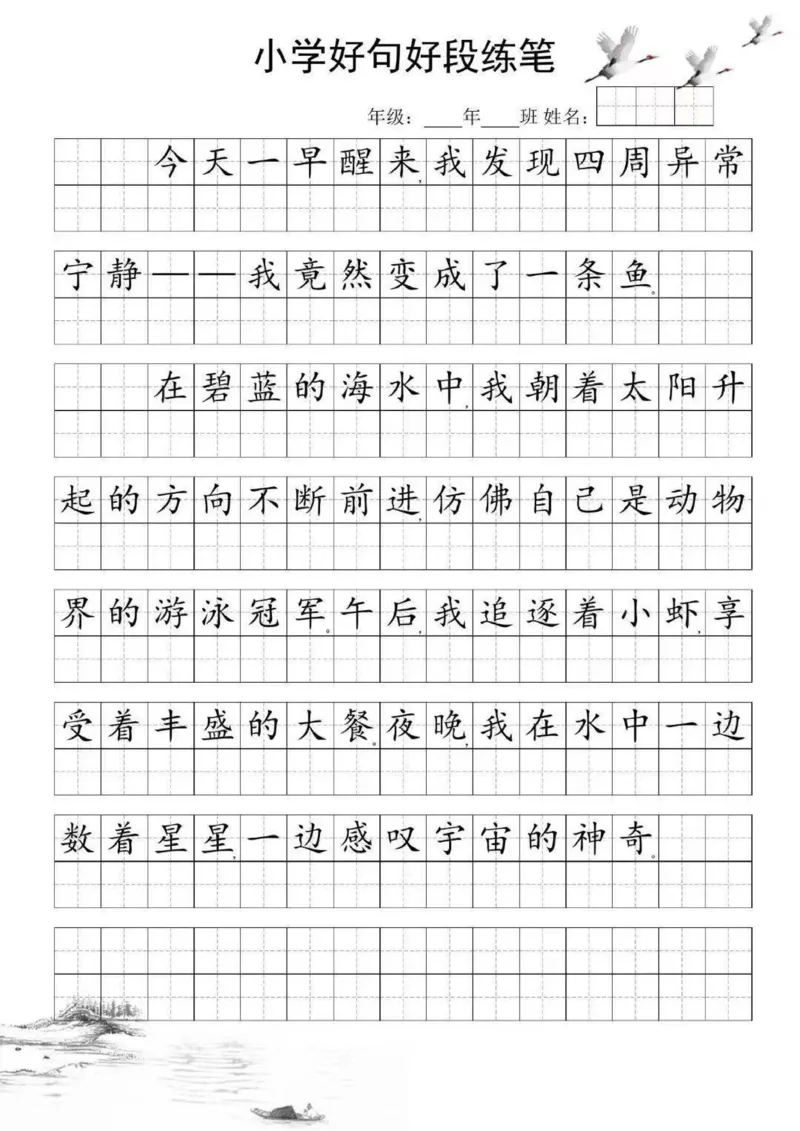 小学好句好段练笔
年级：____年____班 姓名：
今天一早醒来，我发现四周异常
宁静——我竟然变成了一条鱼。
在碧蓝的海水中，我朝着太阳升
起的方向不断前进，仿佛自己是动物
界的游泳冠军。午后，我追逐着小虾，享
受着丰盛的大餐。夜晚，我在水中一边
数着星星，一边感叹宇宙的神奇。